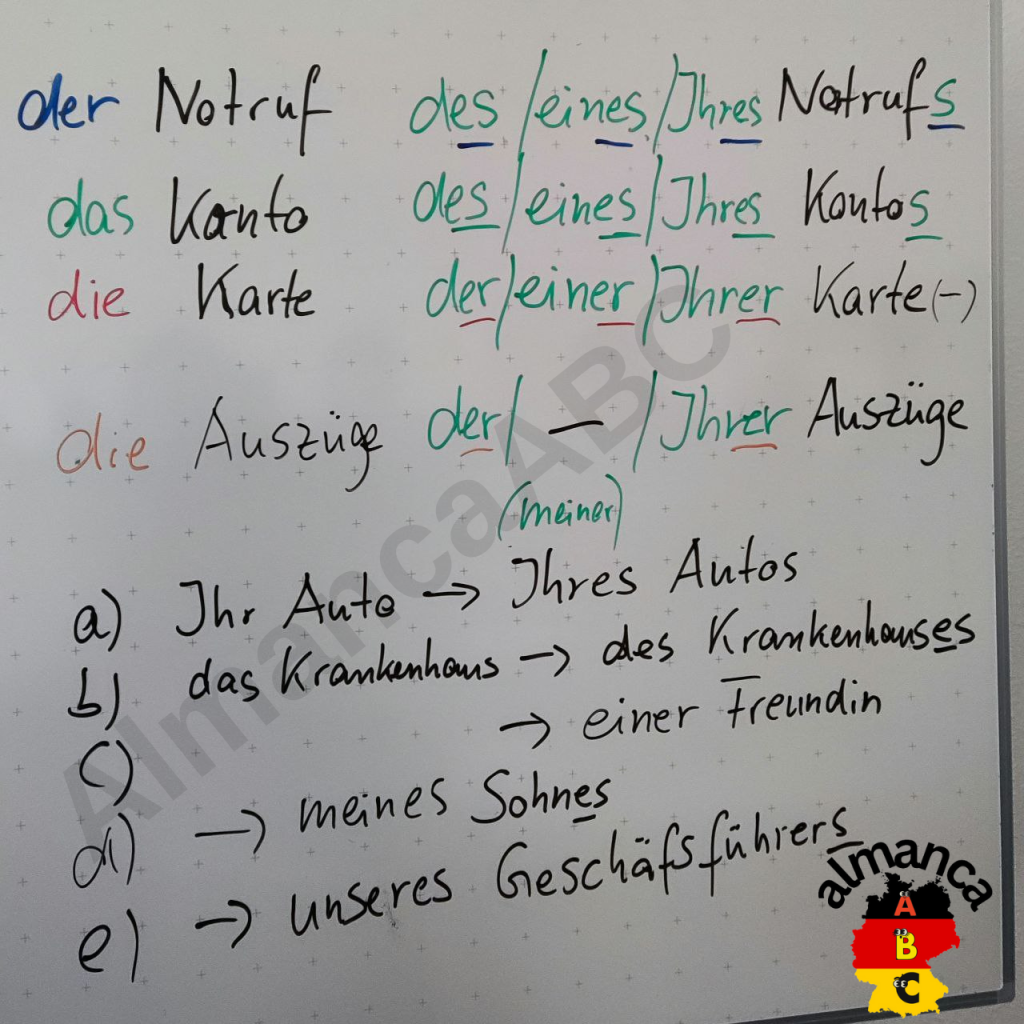 der Notruf des/eines/Ihres Notrufs
das Konto des/eines/Ihres Kontos
die Karte der/einer/Ihrer Karte(-)
die Auszüge der/—/Ihrer Auszüge
(meiner)
a) Ihr Auto → Ihres Autos
b) das Krankenhaus → des Krankenhauses
c) → einer Freundin
d) → meines Sohnes
e) → unseres Geschäfsführers
AlmancaABC
almanca
A
B
C